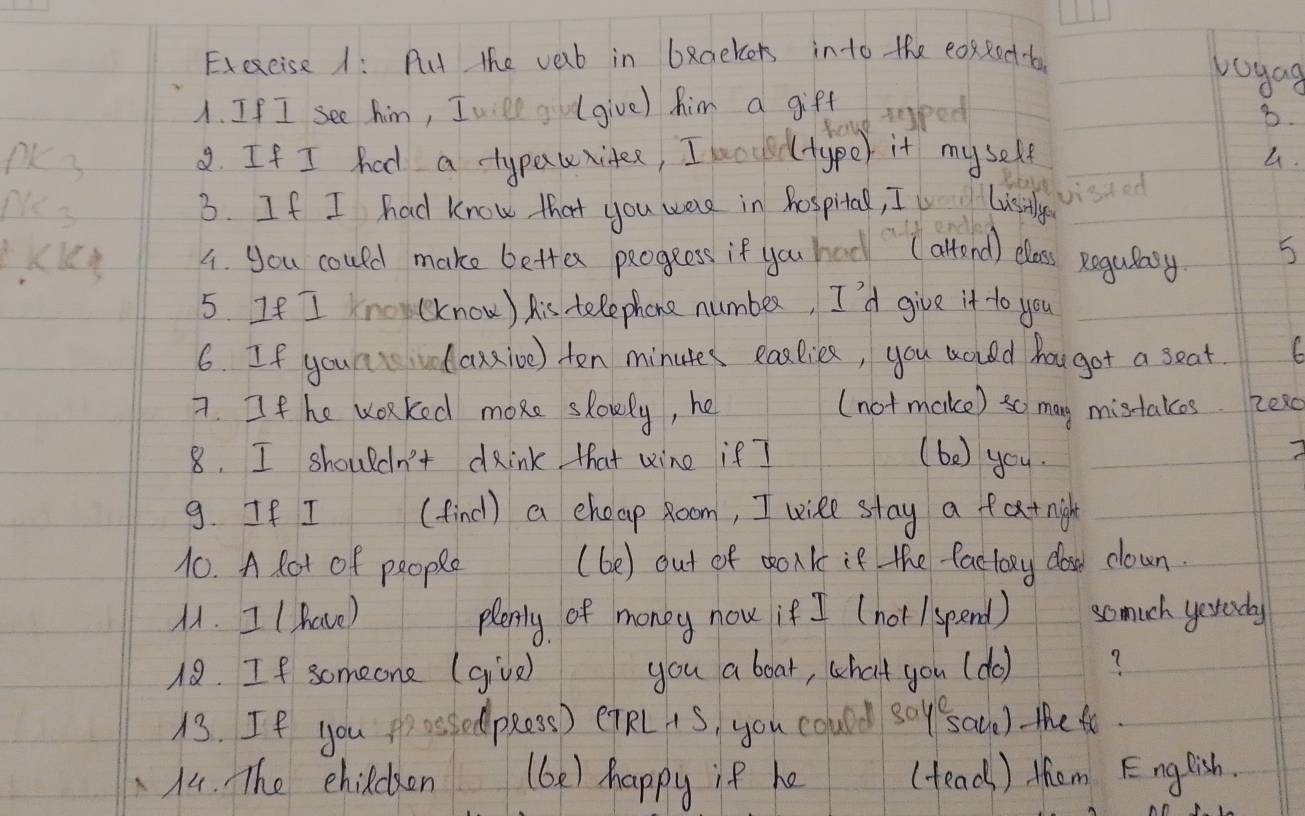 Exercise 1: Put the verb in brackets into the correct
voyag
1. If I see him, I will give (give) him a gift
3.
2. If I had a typewriter, I would have typed (type) it myself
4.
3. If I had know that you were in hospital, I would have visited (visit) you
4. you could make better progress if you had attended (attend) class regulary.
5
5. If I know (know) his telephone number, I'd give it to you
6. If you (arrive) ten minutes earlier, you would hav got a seat.
6
7. If he worked more slowly, he (not make) so many mistakes.
zero
8. I shouldn't drink that wine if I (be) you.
7
9. If I (find) a cheap room, I will stay a fortnight
10. A lot of people (be) out of work if the factory down.
11. I (have) plenty of money now if I (not/spend) so much yesterday
12. If someone (give) you a boat, what you (do) ?
13. If you pressed (press) CTRL + S, you could save (save) the
14. The children (be) happy if he (teach) them English.